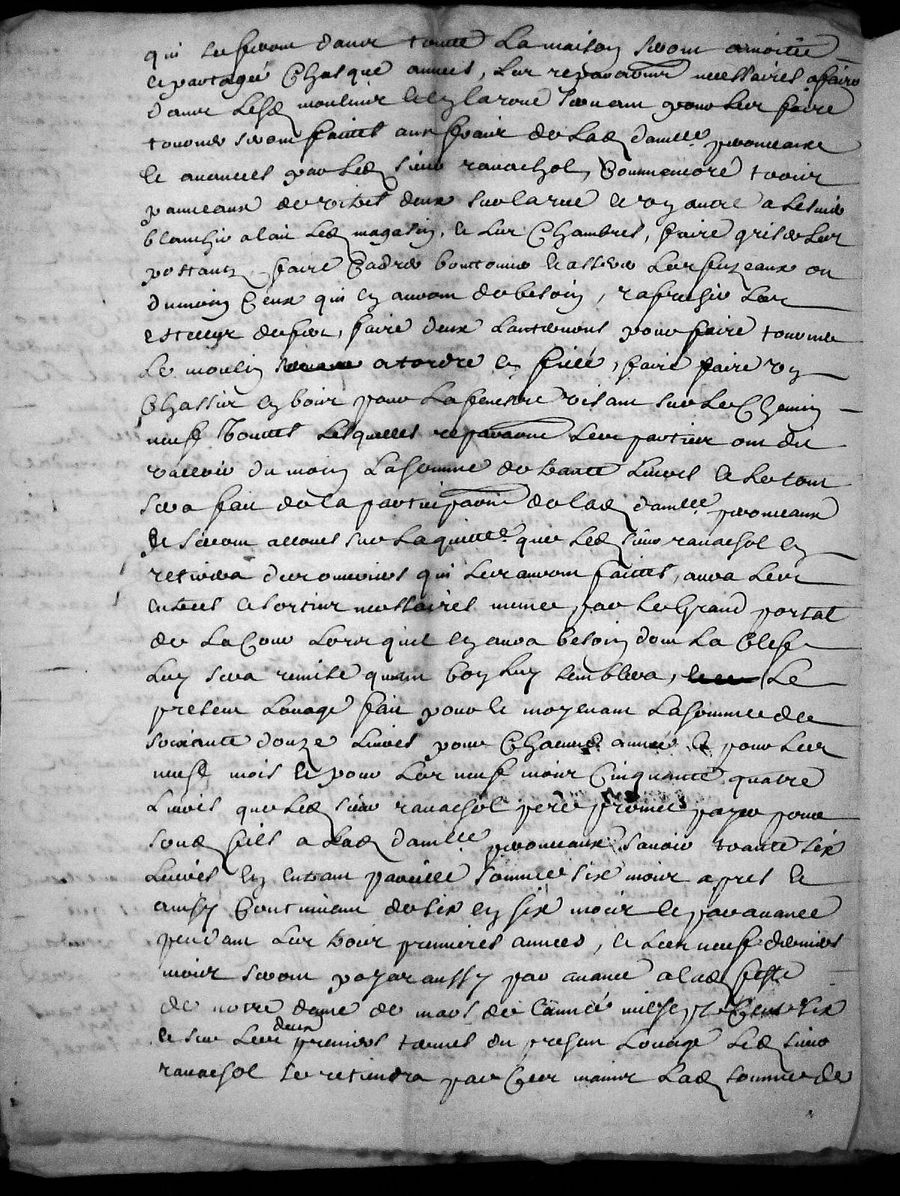 qui se feront dans toutte La maison seront a moitié
et partagé Chasque années, Les reparations necessaires a faire
dans Lesd moulins et en la roue servant pour Les faire
tourner seront faittes aux frais de Lad damlle promeaux
et avancées par Led sieur ravachol, Comme encore trois
panneaux de vitres deux sur la rue et un autre a Lesuie
blanchir a lait Led magasin, et Les Chambres, faire gris de Ler
postant faire Cadre boutonne et assier Les fuzeaux ou
du moin Ceux qui en auront de besoin, rafreshir Les
de fer, faire deux Lanternons pour faire tourner
Le moulin a tordre en fillé, faire faire un
Chassir en bois pour La fenestre visant sur Le Chemin
neuf touttes Lesquelles reparations Les parties ont dit
valloir du moin La somme de trante Livres et Le tout
sera fait de la participation de lad damlle promeaux
et seront alloués sur La quitte que Led sieur ravachol en
retirera des ouvriers qui Les auront faittes, aura Les
entrées et sorties nessaires mesme par Le Grand portal
de La Cour Lors quil en aura besoin dont La Clef
Luy sera remise quant bon Luy semblera, Le
present Louage fait pour et moyenant La somme de
soixante douze Livres pour Chacune année et pour Les
neuf mois et pour Les neuf mois Cinquante quatre
Livres que Led sieur ravachol pere promet payer pour
sond fils a Lad damlle promeaux savoir trante six
Livres en entrant pareille somme six mois apres et
ainsy Continuant de six en six mois et par avance
pendant Les trois premieres années, et Les neuf derniers
mois seront payes aussy par avance a lad feste
de notre dame de mars de Lannée mil sept Cent six
et sur Les deux premiers termes du present Louage Led sieur
ravachol se retiendra par Ces mains Lad somme de